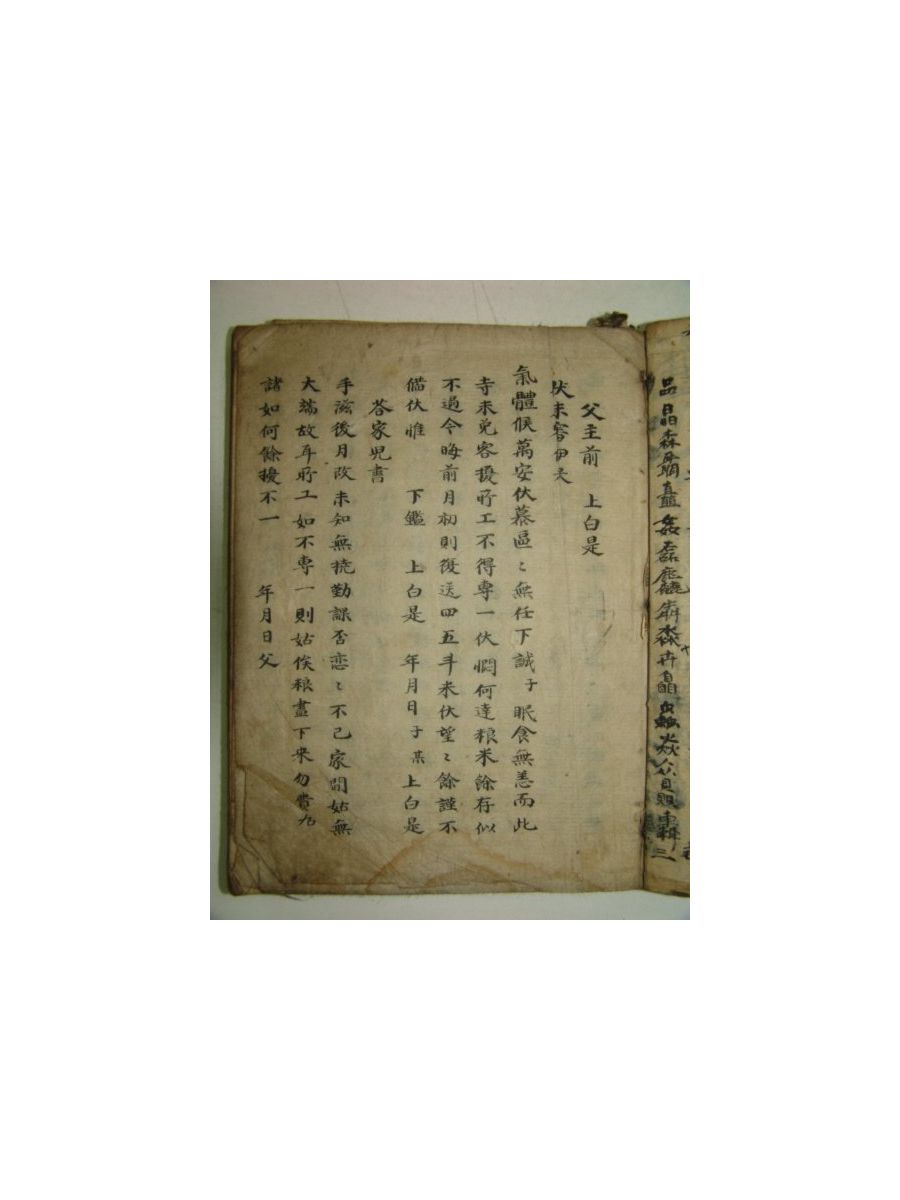 品晶森矗姦磊麤犇淼卉皛蟲焱众贔轟三
父主前 上白是
伏未審伊夫
氣體候萬安伏慕區〻無任下誠子眠食無恙而此
寺未免客擾所工不得專一伏憫何達粮米餘存似
不過今晦前月初則復送四五斗米伏望〻餘謹不
備伏惟 下鑑 上白是 年月日子某上白是
答家兒書
手滋後月改未知無撓勤課否戀〻不已家間姑無
大端故耳所工如不専一則姑俟粮盡下來勿費
諸如何餘擾不一 年月日父